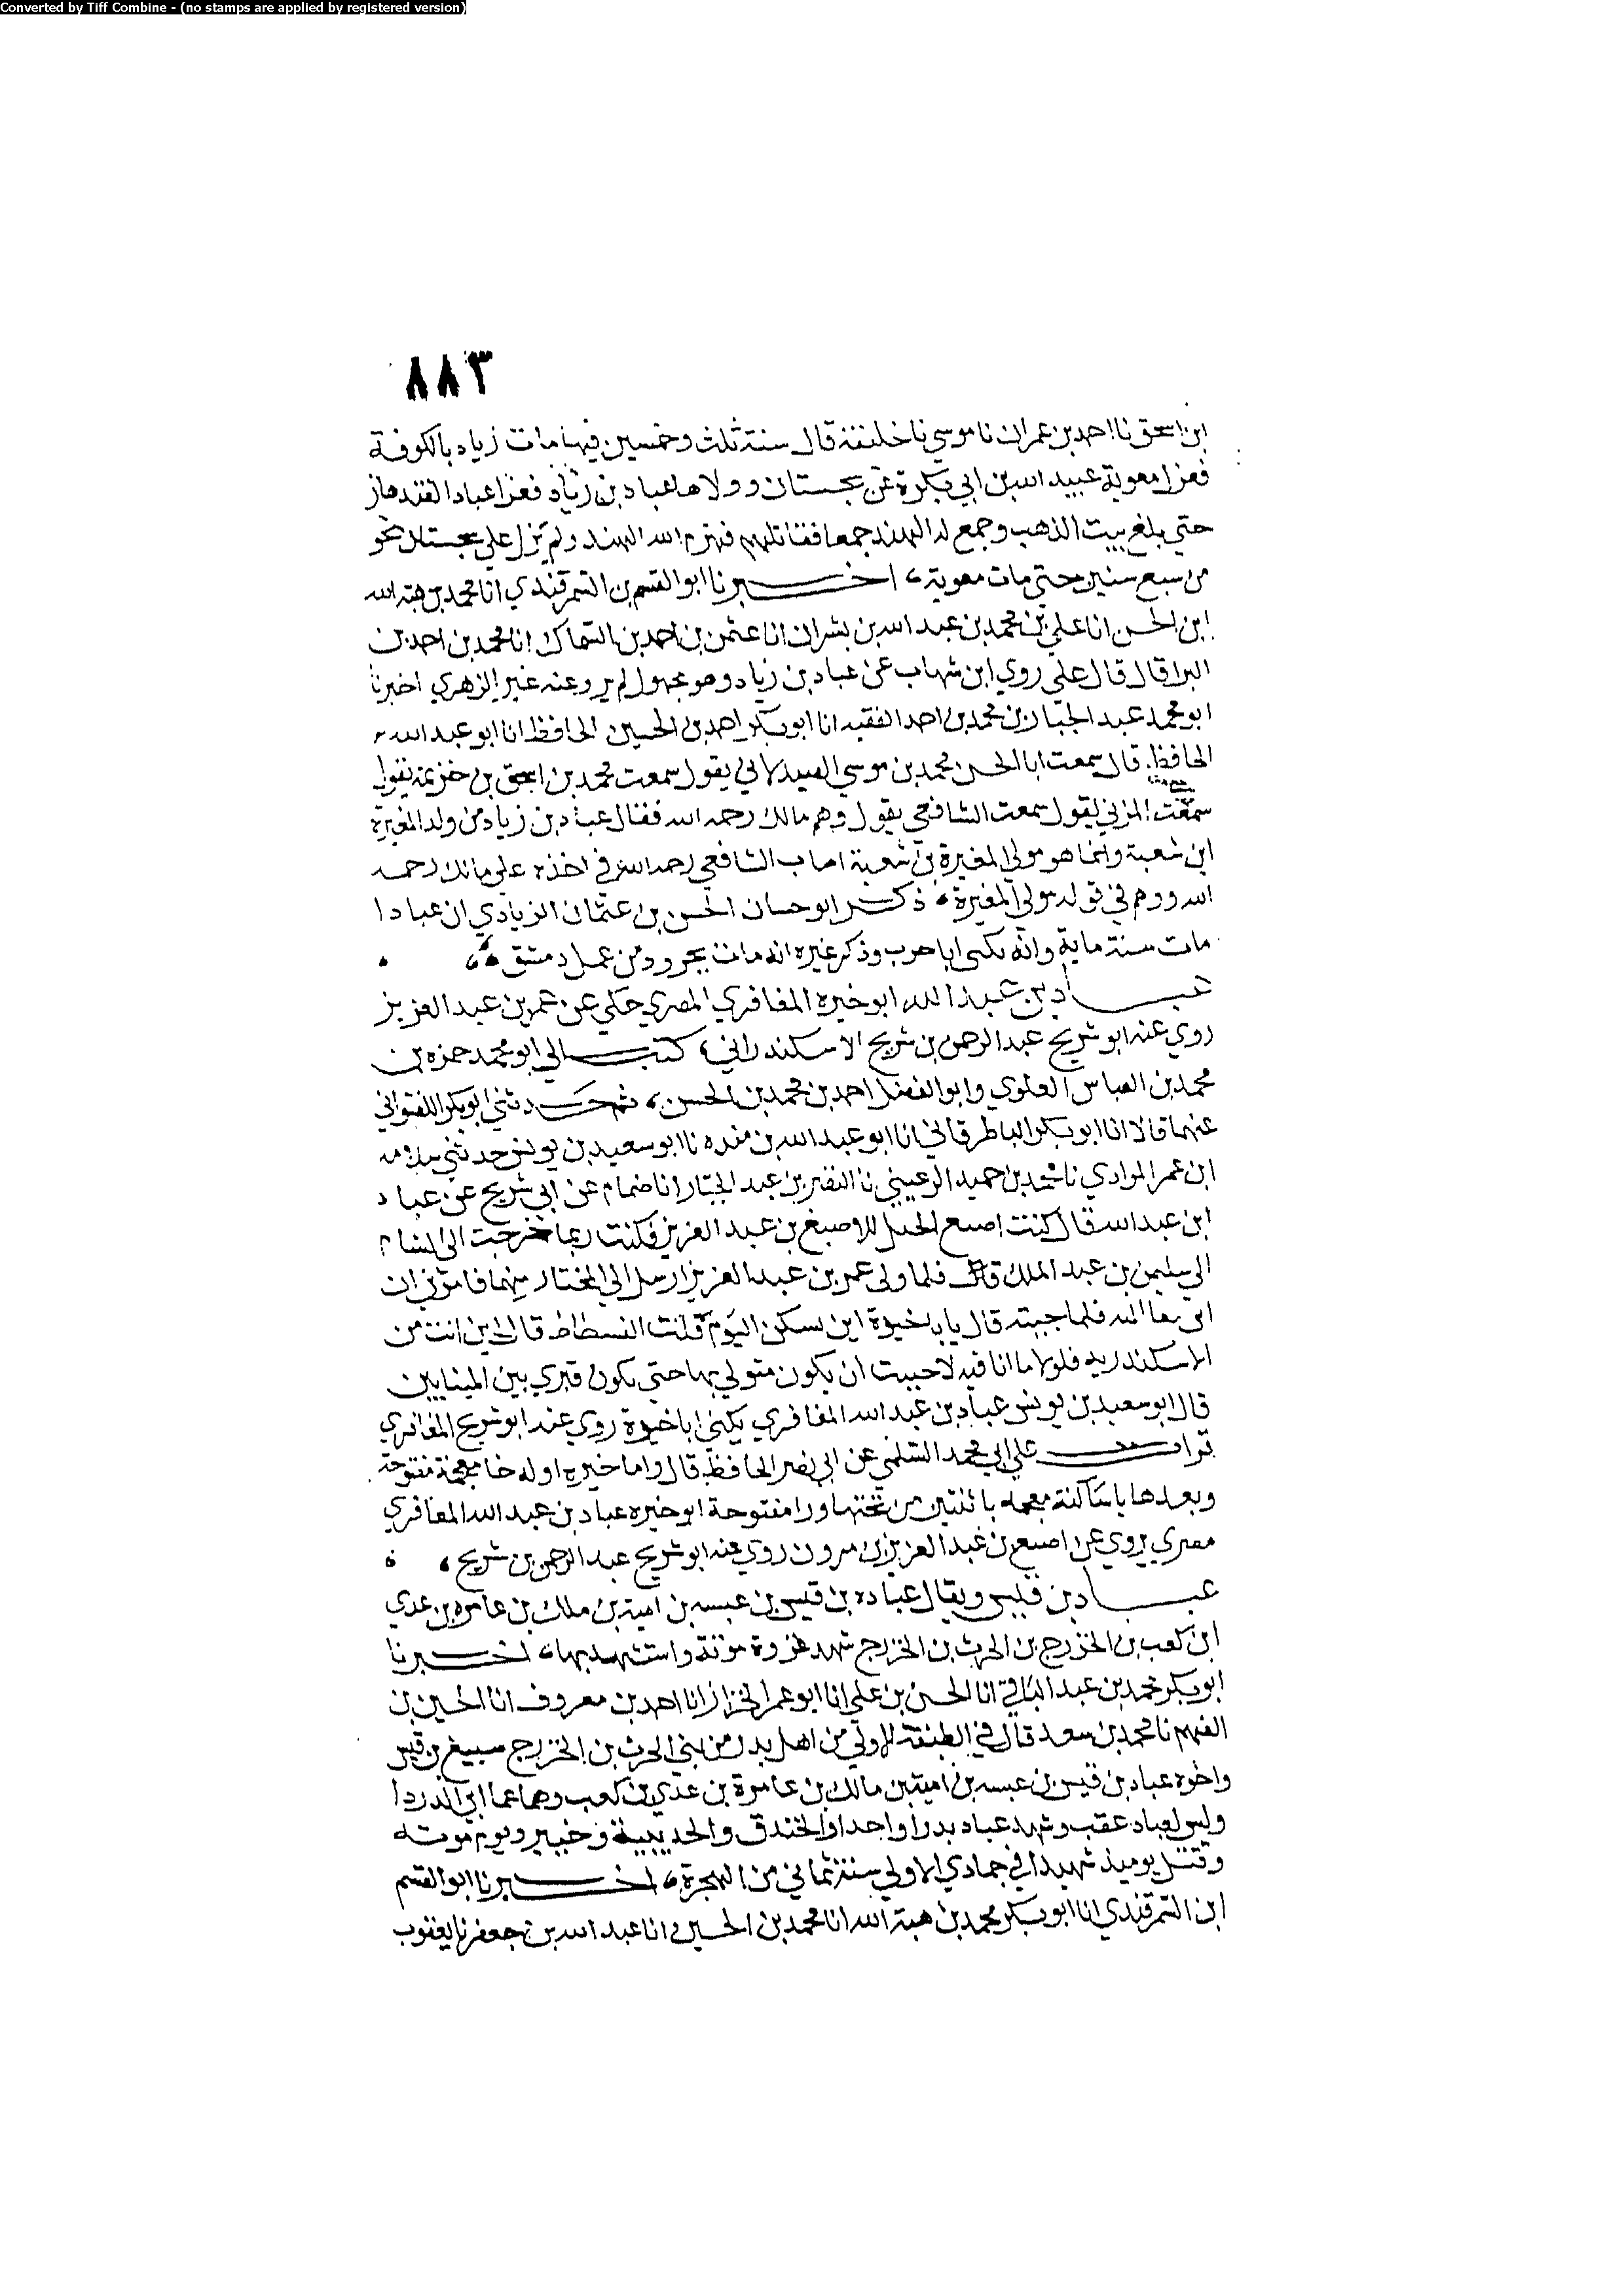 Converted by Tiff Combine - (no stamps are applied by registered version)
٨٨٣
ابن اسحق نا احمد بن عمران نا موسي نا خليفة قال سنة ثلث وخمسين فيها مات زياد بالكوفة
فعزل معوية عبيد الله بن ابي بكرة عن سجستان وولاها عباد بن زياد فغزا عباد القندهار
حتي بلغ بيت الذهب وجمع له الهند جمعا فقاتلهم فهزم الله الهند ولم يزل علي سجستان نحو
من سبع سنين حتي مات معوية، اخبرنا ابو القسم بن السمرقندي انا محمد بن هبة الله
ابن الحسن انا علي بن محمد بن عبد الله بن بشران انا عثمن بن احمد بن السماك انا محمد بن احمد بن
البرا قال قال علي روي ابن شهاب عن عباد بن زياد وهو مجهول لم يرو عنه غير الزهري اخبرنا
ابو محمد عبد الجبار بن محمد بن احمد الفقيه انا ابو بكر احمد بن الحسين الحافظ انا ابو عبد الله
الحافظ قال سمعت ابا الحسن محمد بن موسي الصيدلاني يقول سمعت محمد بن اسحق بن خزيمة يقول
سمعت المزني يقول سمعت الشافعي يقول وهم مالك رحمه الله فقال عباد بن زياد من ولد المغيرة
ابن شعبة وانما هو مولي المغيرة بن شعبة اصاب الشافعي رحمه الله في اخذه علي مالك رحمه
الله ووهم في قوله مولي المغيرة، ذكر ابو حسان الحسن بن عثمان الزيادي ان عبادا
مات سنة ماية وانه يكنى ابا حرب وذكر غيره انه مات بجرود من عمل دمشق
عباد بن عبد الله ابو خيره المعافري المصري حكي عن عمر بن عبد العزيز
روي عنه ابو شريح عبد الرحمن بن شريح الاسكندراني، كتب الي ابو محمد حمزه بن
محمد بن العباس العلوي وابو الفضل احمد بن محمد بن الحسن، ثم حدثني ابو بكر اللفتواني
عنهما قالا انا ابو بكر الباطرقاني انا ابو عبد الله بن منده نا ابو سعيد بن يونس حدثني سلامه
ابن عمر المرادي نا محمد بن حميد الرعيني نا النضر بن عبد الجبار انا ضمام عن ابي شريح عن عباد
ابن عبد الله قال كنت اصنع الحبل للاصبغ بن عبد العزيز فكنت ربما خرجت الي الشام
الي سليمن بن عبد الملك قال فلما ولي عمر بن عبد العزيز ارسل الي المختار منهما فامرني ان
اتي بها اليه فلما جيته قال يابا خيرة اين تسكن اليوم قلت الفسطاط قال اين انت من
الاسكندريه فلولا ما انا فيه لاحببت ان يكون منزلي بها حتي يكون قبري بين المينايين
قال ابو سعيد بن يونس عباد بن عبد الله المعافري يكنى ابا خيرة روي عنه ابو شريح المعافري
قرات علي ابي محمد السلمي عن ابي نصر الحافظ قال واما خيره اوله خا معجمة مفتوحة
وبعدها يا ساكنة معجمه باثنتين من تحتها ورا مفتوحة ابو خيره عباد بن عبد الله المعافري
مصري يروي عن اصبغ بن عبد العزيز بن مرون روي عنه ابو شريح عبد الرحمن بن شريح،
عباد بن قيس ويقال عباده بن قيس بن عبسه بن امية بن ملك بن عامره بن عدي
ابن كعب بن الخزرج بن الحرث بن الخزرج شهد غزوة موتة واستشهد بها، اخبرنا
ابو بكر محمد بن عبد الباقي انا الحسن بن علي انا ابو عمر الخزاز انا احمد بن معروف انا الحسين بن
الفهم نا محمد بن سعد قال في الطبقة الاولي من اهل بدر من بني الحرث بن الخزرج سبيع بن قيس
واخوه عباد بن قيس بن عبسه بن امية بن مالك بن عامرة بن عدي بن كعب وهما عما ابي الدردا
وليس لعباد عقب وشهد عباد بدرا واحدا والخندق والحديبية وخيبر ويوم موته
وقتل يوميذ شهيدا في جمادي الاولي سنة ثماني من الهجرة، اخبرنا ابو القسم
ابن السمرقندي انا ابو بكر محمد بن هبة الله انا محمد بن الحسين انا عبد الله بن جعفر نا يعقوب